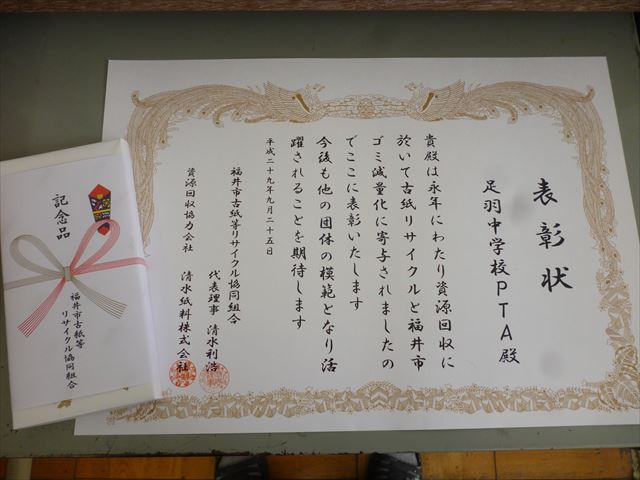 表彰状
足羽中学校PTA殿
貴殿は永年にわたり資源回収に
於いて古紙リサイクルと福井市
ゴミ減量化に寄与されましたの
でここに表彰いたします
今後も他の団体の模範となり活
躍されることを期待します
平成二十九年九月二十五日
福井市古紙等リサイクル協同組合
代表理事 清水利浩
資源回収協力会社
清水紙料株式会社
記念品
福井市古紙等
リサイクル協同組合